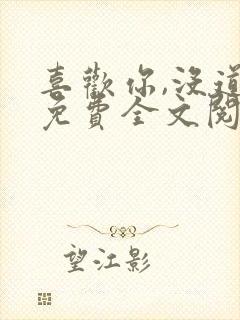 喜歡你,沒道
免費全文閱
望江影